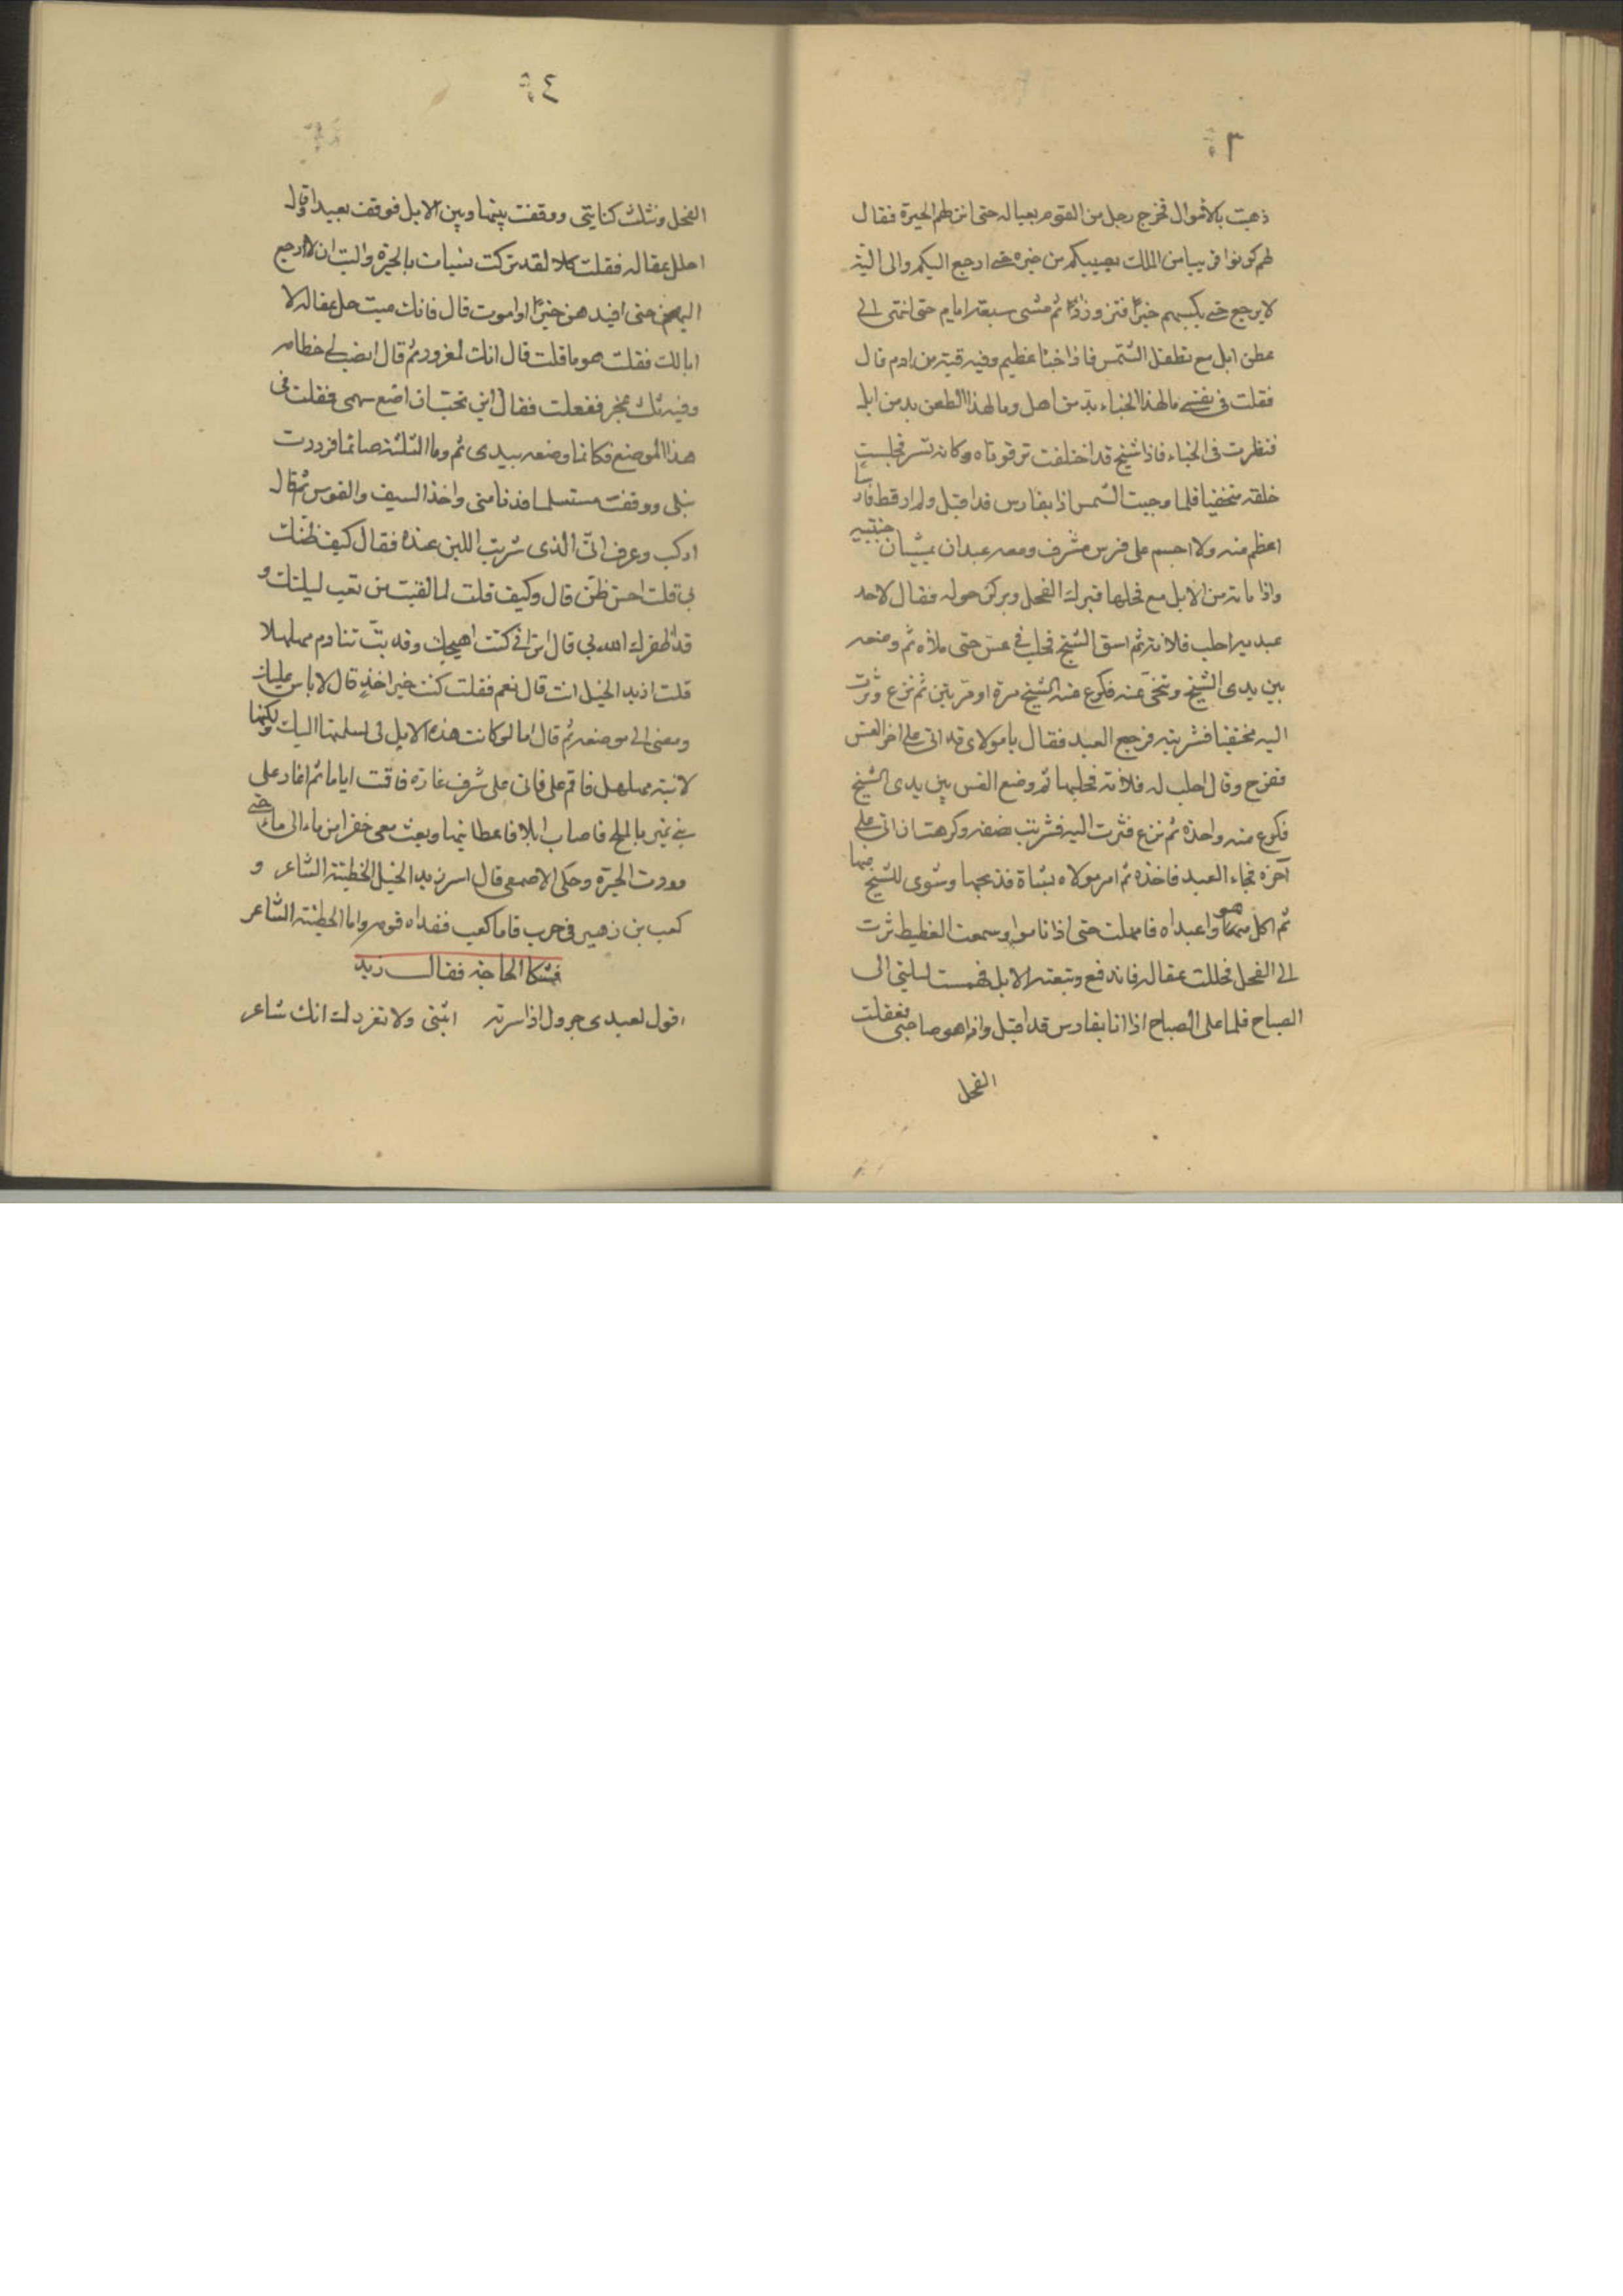 ٣
ذهبت بالاموال فخرج رجل من القوم بعياله حتى انزلهم الحيرة فقال
لهم كونوا قريبا من الملك يصيبكم من خيره حتى ارجع اليكم والى الية
لا يرجع حتى يكسبهم خيرا فتزود زادا ثم مشى سبعة ايام حتى انتهى الى
عطن ابل مع تطفل الشمس فاذا خباء عظيم وفيه قبة من ادم قال
فقلت فى نفسى ما لهذا الخباء بد من اهل وما لهذا الطعن بد من ابل
فنظرت فى الخباء فاذا شيخ قد اختلفت ترقوتاه وكانه نسر فجلست
خلفه متخفيا فلما وجبت الشمس اذا بفارس قد اقبل ولم ار قط فارسا
اعظم منه ولا اجسم على فرس مشرف ومعه عبدان يمشيان جنبيه
واذا مائة من الابل مع فحلها فبرك الفحل وبركن حوله فقال لاحد
عبديه احلب فلانة ثم اسق الشيخ فحلب فى عس حتى ملأه ثم وضعه
بين يدى الشيخ وتنحى عنه فكرع منه الشيخ مرة او مرتين ثم نزع وثرت
اليه مختفيا فشربته فرجع العبد فقال يا مولاى قد اتى على اخر العس
ففرح وقال احلب له فلانة فحلبها ثم وضع العس بين يدى الشيخ
فكرع منه واحدة ثم نزع فثرت اليه فشربت نصفه وكرهت ان اتى على
آخره فجاء العبد فاخذه ثم امر مولاه بشاة فذبحها وشوى للشيخ منها
ثم اكل هو وعبداه فامهلت حتى اذا ناموا وسمعت الغطيط ثرت
الى الفحل فحللت عقاله فاندفع وتبعته الابل فمست ليلتى الى
الصباح فلما على الصباح اذا انا بفارس قد اقبل واذا هو صاحبى فعقلت
الفحل
٤
الفحل ونثلت كنانتى ووقفت بينها وبين الابل فوقف بعيدا وقال
احلل عقاله فقلت كلا لقد تركت بنيات بالحيرة واليت ان لا ارجع
اليهن حتى افيد هن خيرا او اموت قال فانك ميت حل عقاله لا
ابا لك فقلت هو ما قلت قال انك لمغرور ثم قال انصب لى خطامه
وفيه ثلث عجر ففعلت فقال اين تحب ان اضع سهمى فقلت فى
هذا الموضع فكانما وضعه بيدى ثم رما الثلثة صائما فرددت
نبلى ووقفت مستسلما فدنا منى واخذ السيف والقوس ثم قال
اركب وعرف انى الذى شربت اللبن عنده فقال كيف ظنك
بى قلت احسن ظن قال وكيف قلت لما لقيت من تعب ليلتك و
قد اظفرك الله بى قال اترانى كنت اهيجك وقد بت تنادم مهلهلا
قلت ازيد الخيل انت قال نعم فقلت كنت خير اخذ قال لا باس عليك
ومضى الى موضعه ثم قال اما لو كانت هذه الابل لى لسلمتها اليك ولكنها
لابنة مهلهل فاقم على فانى على شرف غارة فاقمت اياما ثم اغار على
بنى نمير بالملح فاصاب ابلا فاعطانيها وبعث معى خفرا من ماء الى ماء حتى
وردت الحيرة وحكى الاصمعى قال اسر زيد الخيل الحطيئة الشاعر و
كعب بن زهير فى حرب فاما كعب ففداه قومه واما الحطيئة الشاعر
فشكا الحاجة فقال زيد
اقول لعبدى جرول اذ اسرته اثبنى ولا تغررك انك شاعر